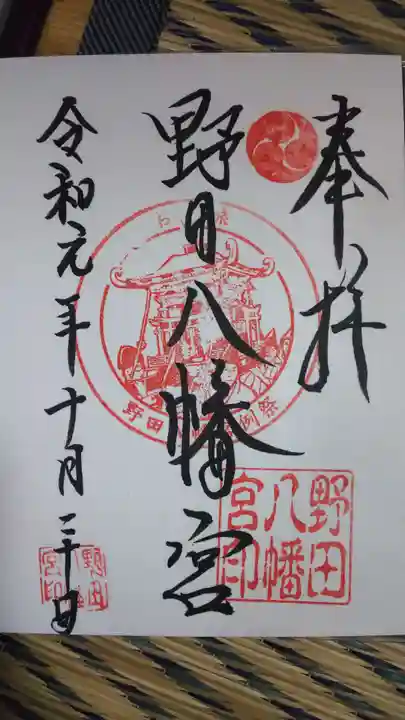 奉拝
野田八幡宮
令和元年十月二十日
野田
例祭
野田
八幡
宮印